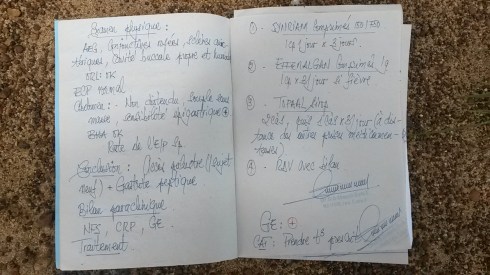 Examen physique :
AEG, Conjonctives rosées, sclères anic-
tériques, cavité buccale propre et humide
ORL: OK
ECP normal
Abdomen : - Non distendu, souple sans
masse, sensibilité épigastrique (+)
OK
Reste de l'E/P Sp.
Conclusion : (Accès palustre (
) + Gastrite peptique
Bilan paraclinique
NFS, CRP, GE
Traitement
① - SYNRIAM Comprimés 150/750
1cp/jour x 3 jours.
② - EFFERALGAN Comprimés 1g
1cp x 3/jour si fièvre
③ - TOPAAL sirop
x 3/jour (à dis-
tance des autres prises médicamen-
teuses)
④ - RDV avec bilan
GE: (+)
CAT: Prendre